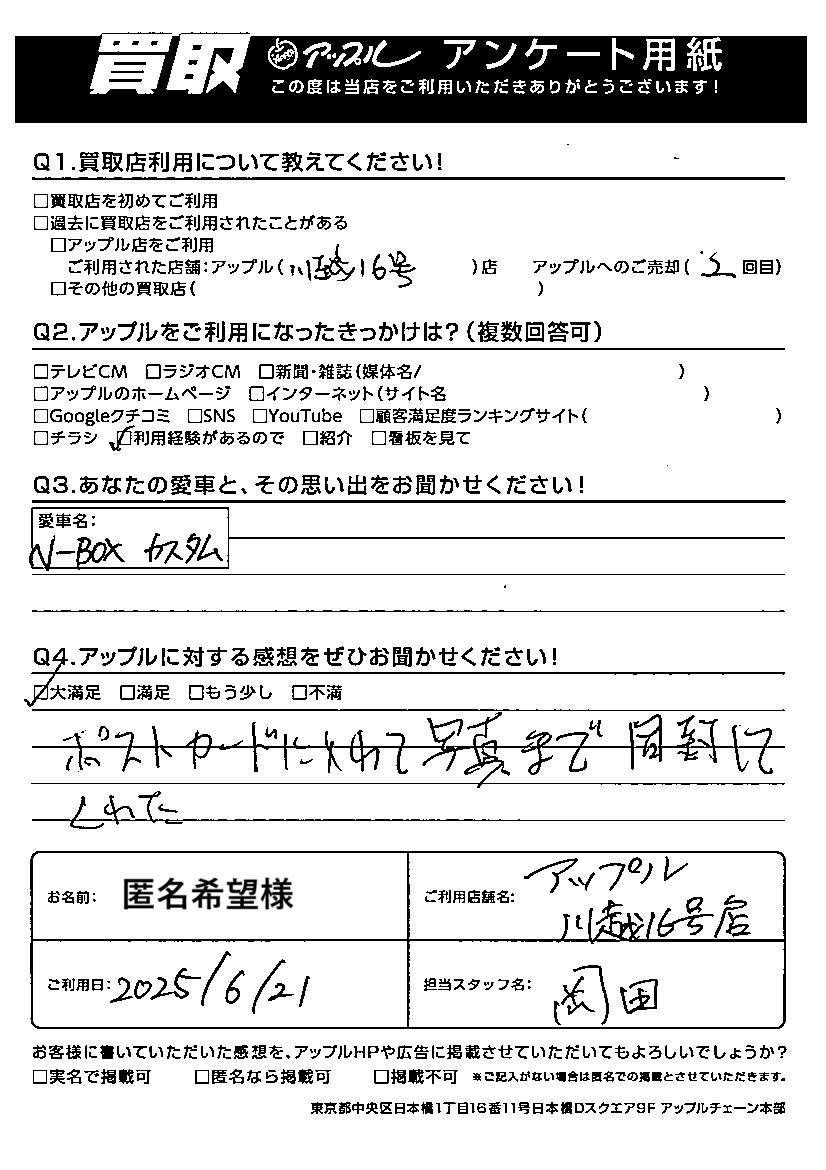 買取 アップル アンケート用紙
この度は当店をご利用いただきありがとうございます!
Q1.買取店利用について教えてください!
□買取店を初めてご利用
□過去に買取店をご利用されたことがある
□アップル店をご利用
ご利用された店舗:アップル(川越16号)店 アップルへのご売却(2回目)
□その他の買取店( )
Q2.アップルをご利用になったきっかけは?(複数回答可)
□テレビCM □ラジオCM □新聞・雑誌(媒体名/ )
□アップルのホームページ □インターネット(サイト名 )
□Googleクチコミ □SNS □YouTube □顧客満足度ランキングサイト( )
□チラシ ☑利用経験があるので □紹介 □看板を見て
Q3.あなたの愛車と、その思い出をお聞かせください!
愛車名:
N-BOX カスタム
Q4.アップルに対する感想をぜひお聞かせください!
☑大満足 □満足 □もう少し □不満
ポストカードに
写真まで 同封して
くれた
お名前: 匿名希望様
ご利用店舗名: アップル
川越16号店
ご利用日: 2025/6/21
担当スタッフ名: 岡田
お客様に書いていただいた感想を、アップルHPや広告に掲載させていただいてもよろしいでしょうか?
□実名で掲載可 □匿名なら掲載可 □掲載不可 ※ご記入がない場合は匿名での掲載とさせていただきます。
東京都中央区日本橋1丁目16番11号日本橋Dスクエア9F アップルチェーン本部